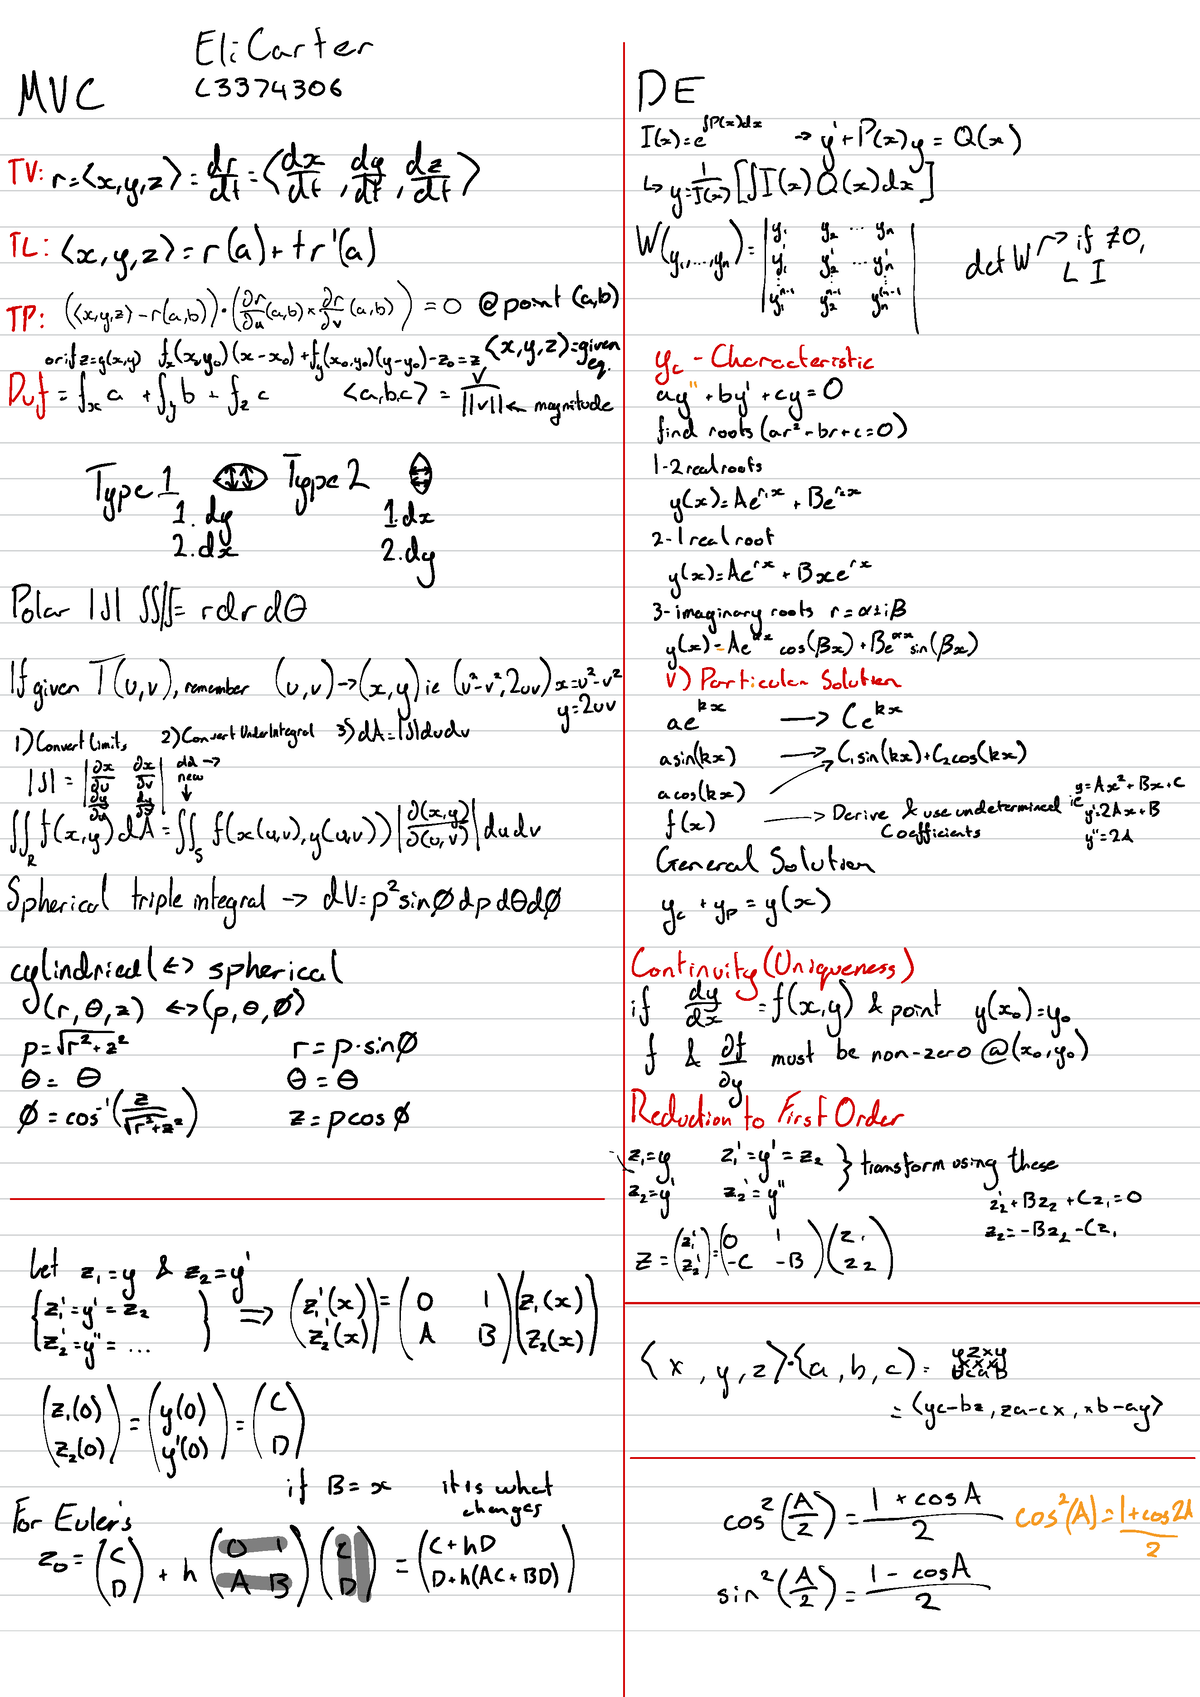 Eli Carter
C3374306
MVC
TV: r=<x,y,z> = dr/dt = <dx/dt, dy/dt, dz/dt>
TL: <x,y,z> = r(a) + tr'(a)
TP: (<x,y,z> - r(a,b)) · (∂r/∂u(a,b) × ∂r/∂v(a,b)) = 0 @ point (a,b)
or if z=g(x,y) fₓ(x₀,y₀)(x-x₀) + f_y(x₀,y₀)(y-y₀) - z₀ = z <x,y,z> = given eq.
Duf = fₓ a + f_y b + f_z c <a,b,c> = v/||v|| ← magnitude
Type 1 Type 2
1. dy 1. dx
2. dx 2. dy
Polar |J| ∫∫ = r dr dθ
If given T(u,v), remember (u,v)→(x,y) ie (u²-v², 2uv) x=u²-v²
y=2uv
1) Convert Limits 2) Convert Under Integral 3) dA = |J| du dv
|J| = |∂x/∂u ∂x/∂v| old →
|∂y/∂u ∂y/∂v| new ↓
∫∫_R f(x,y) dA = ∫∫_S f(x(u,v), y(u,v)) |∂(x,y)/∂(u,v)| du dv
Spherical triple integral → dV = p² sinØ dp dθ dØ
cylindrical ↔ spherical
(r, θ, z) ↔ (p, θ, Ø)
p = √r²+z² r = p·sinØ
θ = θ θ = θ
Ø = cos⁻¹(z/√r²+z²) z = p cos Ø
Let z₁=y & z₂=y'
{z₁'=y'=z₂
{z₂'=y''=... } ⇒ (z₁'(x) z₂'(x)) = (0 1 A B)(z₁(x) z₂(x))
(z₁(0) z₂(0)) = (y(0) y'(0)) = (C D)
if B=x it is what changes
For Euler's
z₀ = (C D) + h (0 1 A B)(C D) = (C+hD D+h(AC+BD))
DE
I(x) = e^∫P(x)dx → y'+P(x)y = Q(x)
↳ y = 1/I(x) [∫I(x)Q(x)dx]
W(y₁,...,yₙ) = |y₁ y₂ ... yₙ| det W → if ≠0, L I
|y₁' y₂' ... yₙ'|
|y₁ⁿ⁻¹ y₂ⁿ⁻¹ yₙⁿ⁻¹|
y_c - Characteristic
ay'' + by' + cy = 0
find roots (ar²+br+c=0)
1-2 real roots
y(x) = Ae^r₁x + Be^r₂x
2-1 real root
y(x) = Ae^rx + Bxe^rx
3-imaginary roots r = α±iβ
y(x) = Ae^αx cos(βx) + Be^αx sin(βx)
V) Particular Solution
ae^kx → Ce^kx
asin(kx) → C₁sin(kx)+C₂cos(kx)
acos(kx)
f(x) → Derive & use undetermined Coefficients ie y=Ax²+Bx+C
y'=2Ax+B
y''=2A
General Solution
y_c + y_p = y(x)
Continuity (Uniqueness)
if dy/dx = f(x,y) & point y(x₀)=y₀
f & ∂f/∂y must be non-zero @(x₀,y₀)
Reduction to First Order
z₁=y z₁'=y'=z₂ } transform using these
z₂=y' z₂'=y''
z₂'+Bz₂+Cz₁=0
z₂=-Bz₂-Cz₁
Z = (z₁' z₂') = (0 1 -C -B)(z₁ z₂)
<x,y,z>·<a,b,c> = yzxy bcab
= <yc-bz, za-cx, xb-ay>
cos²(A/2) = 1+cosA/2 cos²(A) = 1+cos2A/2
sin²(A/2) = 1-cosA/2